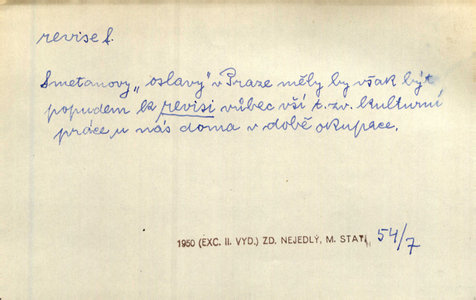 revise f.
Smetanovy „oslavy" v Praze měly by však být
popudem k revisi vůbec vší t. zv. kulturní
práce u nás doma v době okupace.
1950 (EXC. II. VYD.) ZD. NEJEDLÝ, M. STATI, 54/7